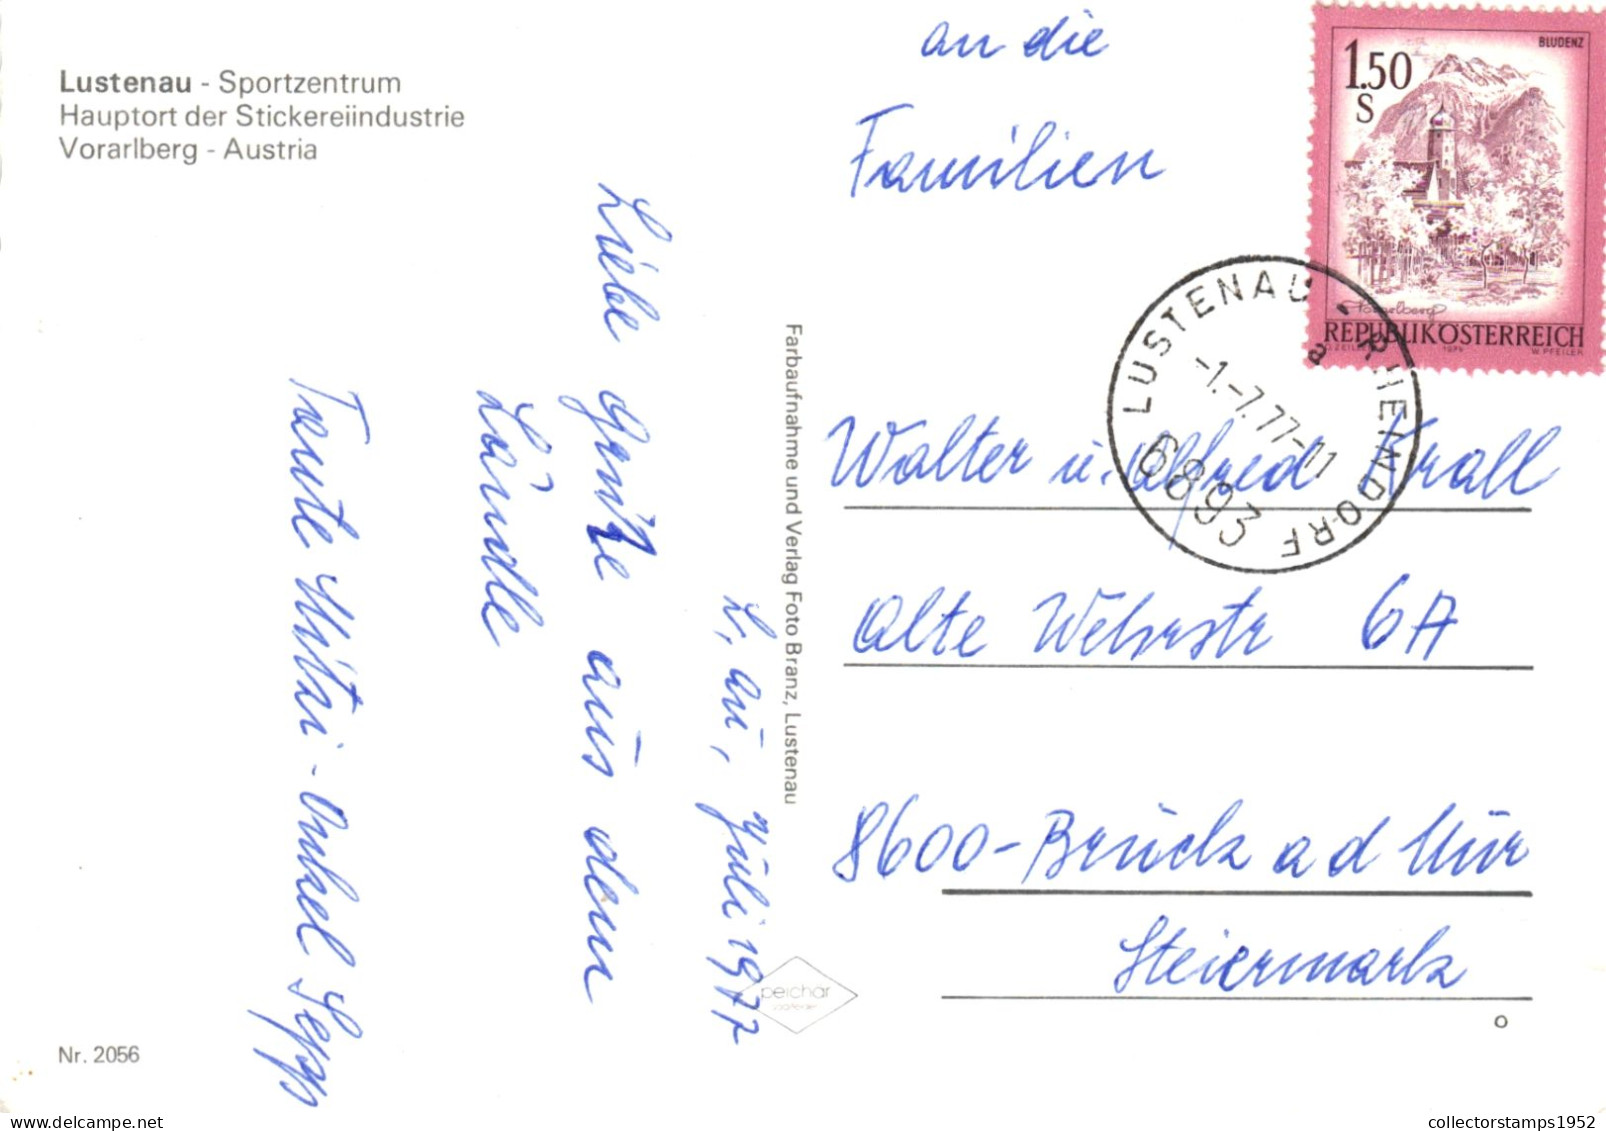 Lustenau - Sportzentrum
Hauptort der Stickereiindustrie
Vorarlberg - Austria
L, au, Juli 1977
Liebe Grüße aus dem
Ländle
Tante Mitzi - Onkel Sepp
Nr. 2056
Farbaufnahme und Verlag Foto Branz, Lustenau
peichar
an die
Familien
Walter u. Alfred Krall
Alte Wehrstr 6A
8600-Bruck a d Mur
Steiermark
o
BLUDENZ
1.50
S
Vorarlberg
REPUBLIK ÖSTERREICH
O. ZEILER 1974 W. PFEILER
LUSTENAU - RHEINDORF
a
-1.-7.77-11
6893
collectorstamps1952